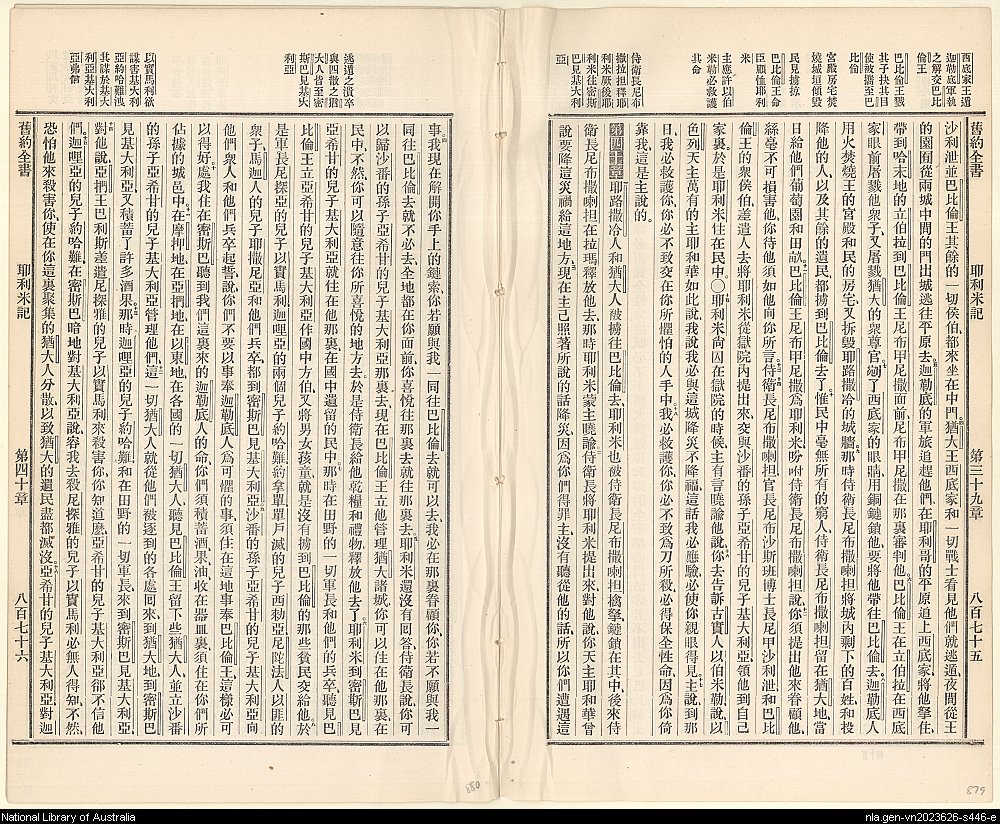 西底家王逃
迦勒底軍執
之解交巴比
倫王
巴比倫王戮
其子抉其目
使彼攜至巴
比倫
宮殿房宅焚
燒城垣傾毀
民見擄掠
巴比倫王命
臣顧恤耶利
米
主應許以伯
米勒必救護
其命
侍衛長尼布
撒拉担釋耶
利米厥後耶
利米往密斯
巴見基大利
亞
舊約全書 耶利米記 第三十九章 八百七十五
沙利泄並巴比倫王其餘的一切侯伯都來坐在中門猶大王西底家和一切戰士看見他們就逃遁夜間從王
的園囿從兩城中間的門出城逃往平原去迦勒底的軍旅追趕他們在耶利哥的平原追上西底家將他擎住
帶到哈末地的立伯拉到巴比倫王尼布甲尼撒面前尼布甲尼撒在那裏審判他巴比倫王在立伯拉在西底
家眼前屠戮他衆子又屠戮猶大的衆尊官剜了西底家的眼睛用銅鏈鎖他要將他帶往巴比倫去迦勒底人
用火焚燒王的宮殿和民的房宅又拆毀耶路撒冷的城牆那時侍衛長尼布撒喇担將城內剩下的百姓和投
降他的人以及其餘的遺民都擄到巴比倫去了惟民中毫無所有的窮人侍衛長尼布撒喇担留在猶大地當
日給他們葡萄園和田畝巴比倫王尼布甲尼撒爲耶利米吩咐侍衛長尼布撒喇担說你須提出他來眷顧他
絲毫不可損害他你待他須如他向你所言侍衛長尼布撒喇担官長尼布沙斯班博士長尼甲沙利泄和巴比
倫王的衆侯伯差遣人去將耶利米從獄院內提出來交與沙番的孫子亞希甘的兒子基大利亞領他到自己
家裏於是耶利米住在民中〇耶利米尙囚在獄院的時候主有言曉諭他說你去告訴古實人以伯米勒說以
色列天主萬有的主耶和華如此說我說我必與這城降災不降福這話我必應驗必使你親眼得見主說到那
日我必救護你你必不致交在你所懼怕的人手中我必救護你你必不致爲刀所殺必得保全性命因爲你倚
靠我這是主說的
第四十章耶路撒冷人和猶大人被擄往巴比倫去耶利米也被侍衛長尼布撒喇担擒拏鏈鎖在其中後來侍
衛長尼布撒喇担在拉瑪釋放他去那時耶利米蒙主曉諭侍衛長將耶利米提出來對他說你天主耶和華曾
說要降這災禍給這地方現在主已照著所說的話降災因爲你們得罪主沒有聽從他的話所以你們遭遇這
逃遁之潰卒
與四散之猶
大人皆至密
斯巴見基大
利亞
以實馬利欲
謀害基大利
亞約哈難洩
其謀於基大
利亞基大利
亞弗信
事我現在解開你手上的鏈索你若願與我一同往巴比倫去就可以去我必在那裏眷顧你你若不願與我一
同往巴比倫去就不必去全地都在你面前你喜悅往那裏去就往那裏去耶利米還沒有回答侍衛長說你可
以歸沙番的孫子亞希甘的兒子基大利亞那裏去現在巴比倫王立他管理猶大諸城你可以住在他那裏在
民中不然你可以隨意往你所喜悅的地方去於是侍衛長給他乾糧和禮物釋放他去了耶利米到密斯巴見
亞希甘的兒子基大利亞就住在他那裏在國中遺留的民中那時在田野的一切軍長和他們的兵卒聽見巴
比倫王立亞希甘的兒子基大利亞作國中方伯又將男女孩童就是沒有擄到巴比倫的那些貧民交給他於
是軍長尼探亞的兒子以實馬利迦哩亞的兩個兒子約哈難約拿單單戶滅的兒子西勒亞尼陀法人以匪的
衆子馬迦人的兒子耶撒尼亞和他們兵卒都到密斯巴見基大利亞沙番的孫子亞希甘的兒子基大利亞向
他們衆人和他們兵卒起誓說你們不要以事奉迦勒底人爲可懼的事須住在這地事奉巴比倫王這樣必可
以得好處我住在密斯巴聽到我們這裏來的迦勒底人的命你們須積蓄酒果油收在器皿裏須住在你們所
佔據的城邑中在摩押地在亞捫地在以東地在各國的一切猶大人聽見巴比倫王留下些猶大人並立沙番
的孫子亞希甘的兒子基大利亞管理他們這一切猶大人就從他們被逐到的各處囘來到猶大地到密斯巴
見基大利亞又積蓄了許多酒果那時迦哩亞的兒子約哈難和在田野的一切軍長來到密斯巴見基大利亞
對他說亞捫王巴利斯差遣尼探雅的兒子以實馬利來殺害你你知道麼亞希甘的兒子基大利亞卻不信他
們迦哩亞的兒子約哈難在密斯巴暗地對基大利亞說容我去殺尼探雅的兒子以實馬利必無人得知不然
恐怕他來殺害你使在你這裏聚集的猶大人分散以致猶大的遺民盡都滅沒亞希甘的兒子基大利亞對迦
舊約全書 耶利米記 第四十章 八百七十六
880
879
National Library of Australia
nla.gen-vn2023626-s446-e